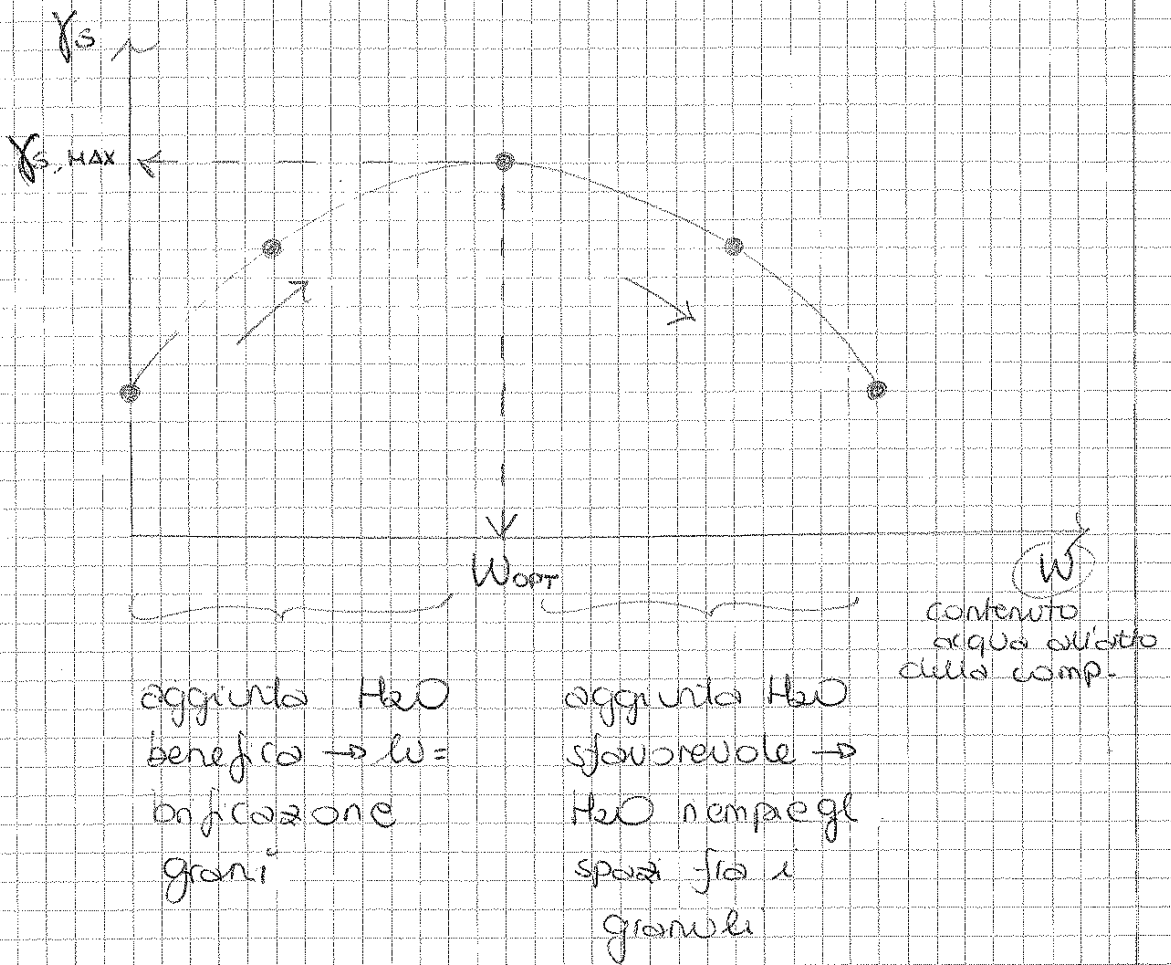 γs
γs, MAX
WOPT
W
contenuto
acqua all'atto
della comp.
aggiunta H2O
benefica → lu=
brificazione
grani
aggiunta H2O
sfavorevole →
H2O riempie gl
spazi fra i
granuli